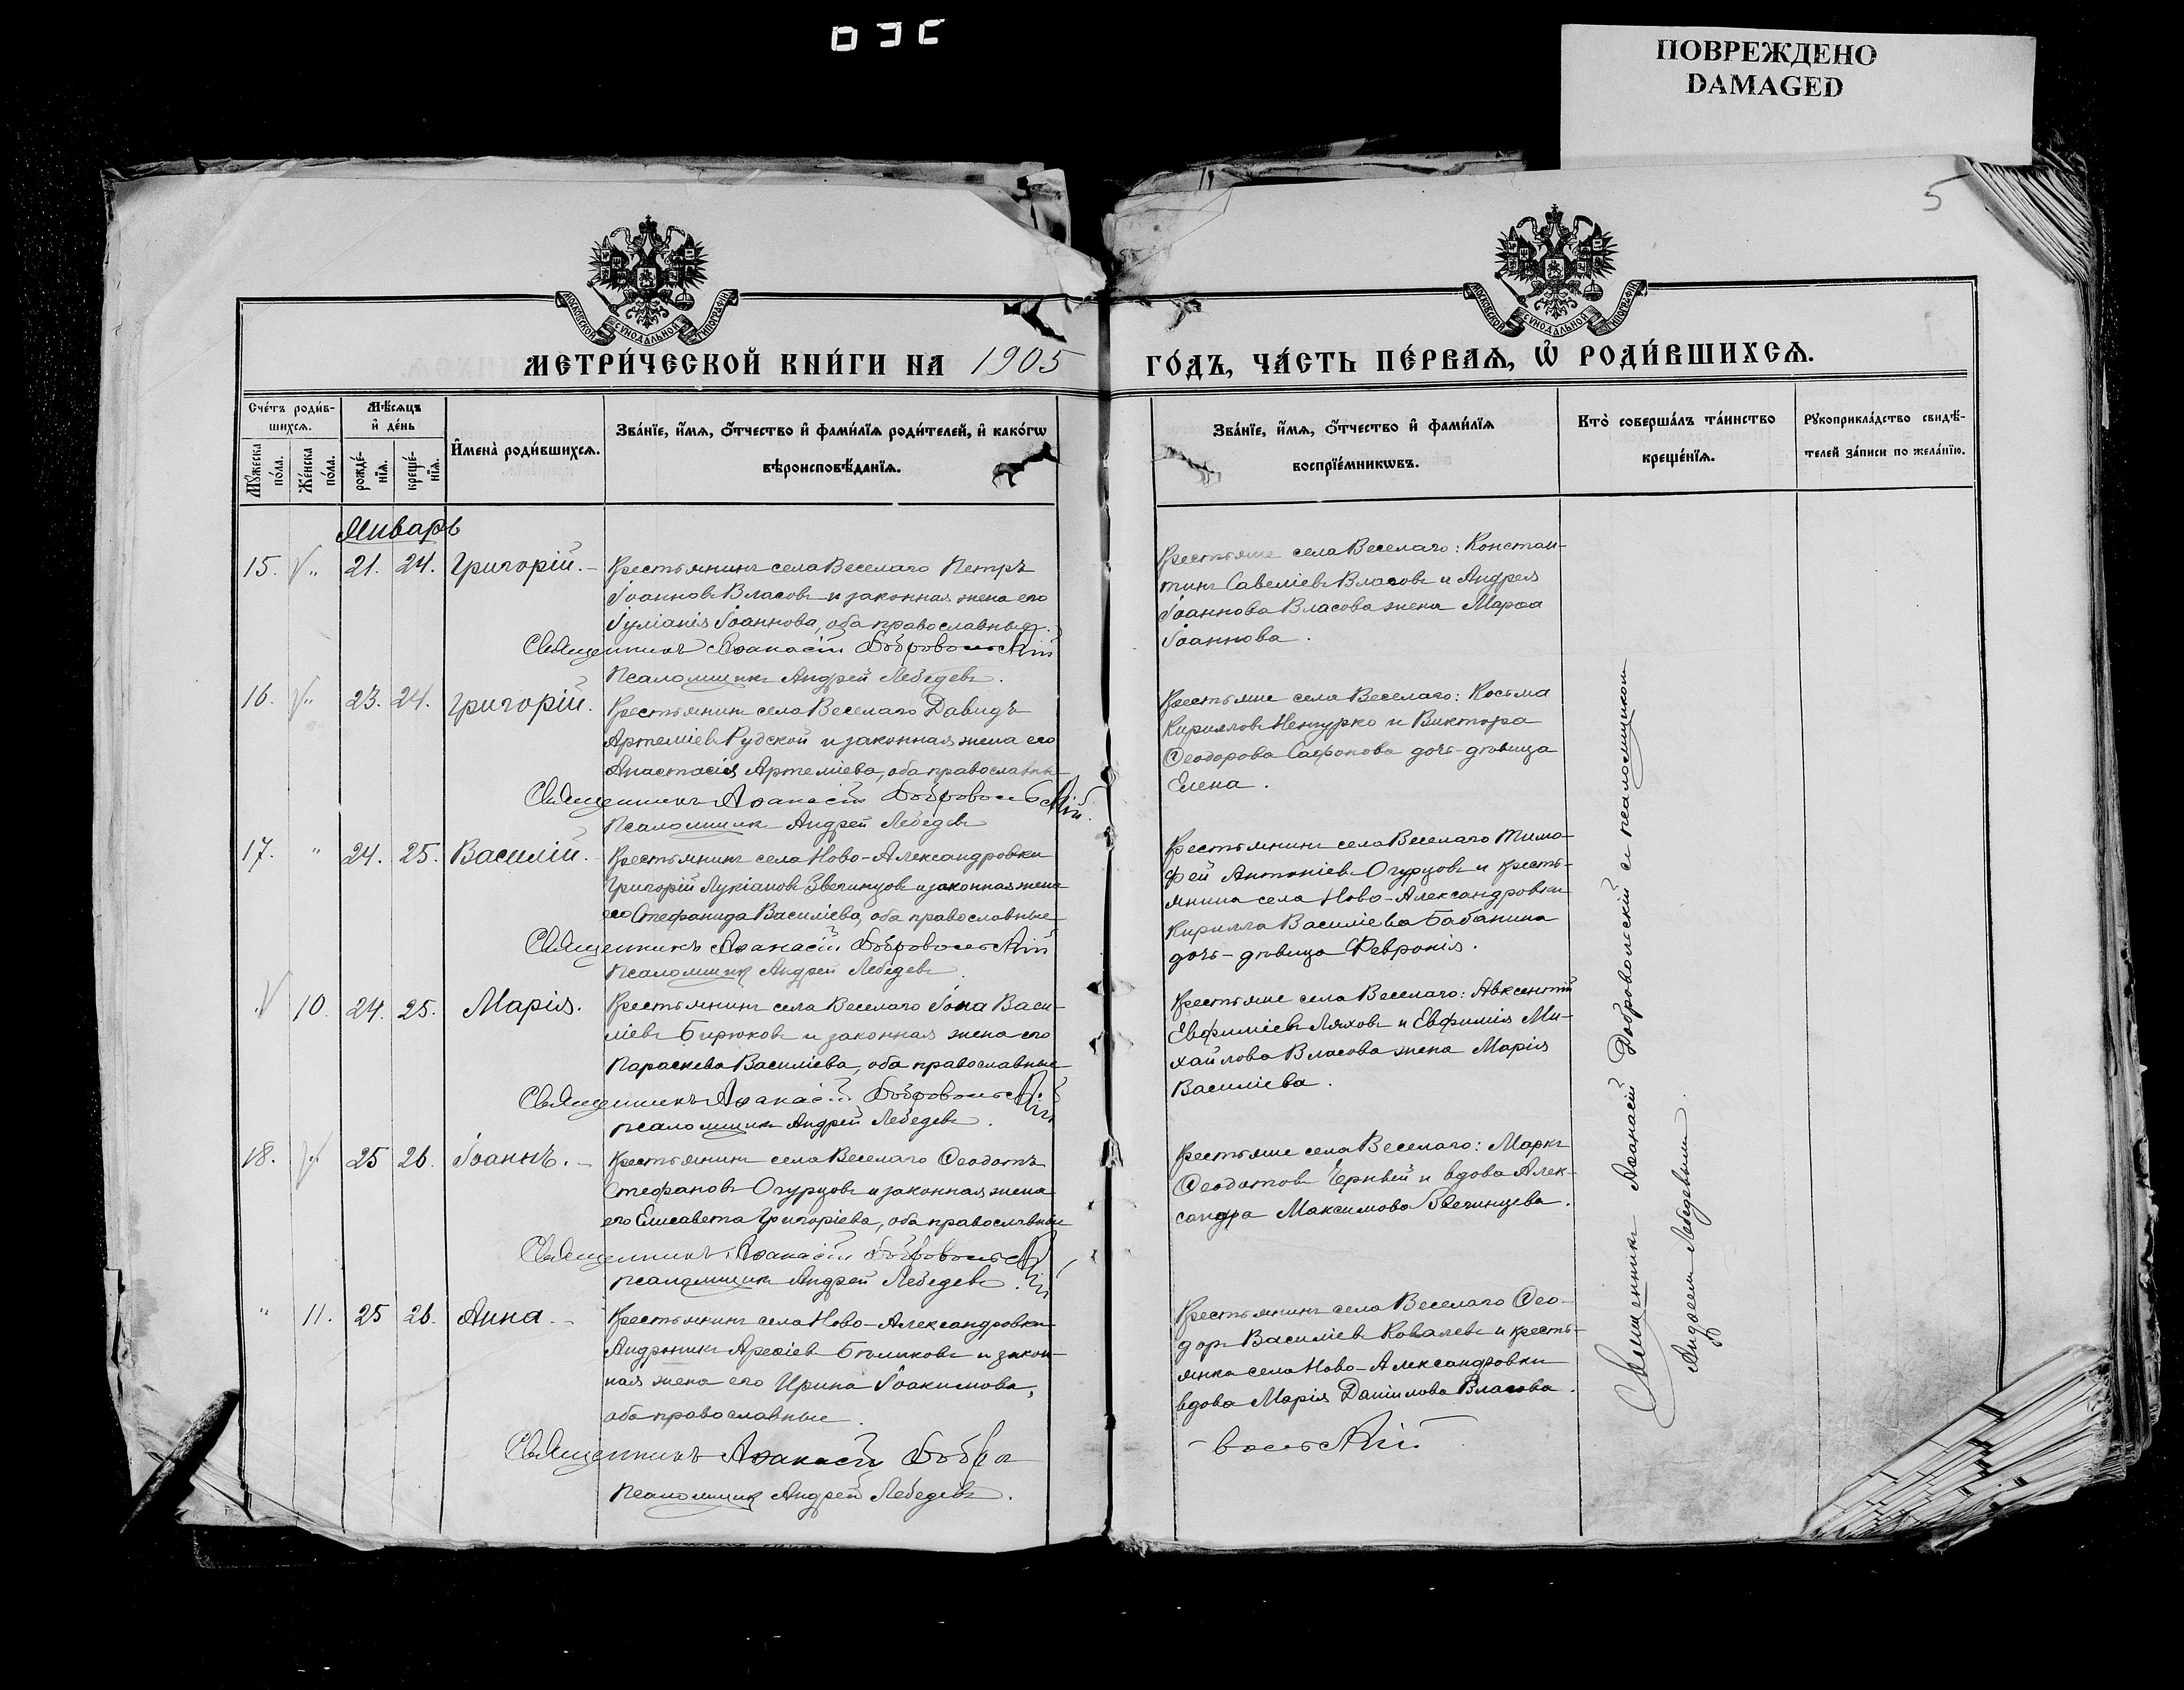 ПОВРЕЖДЕНО
DAMAGED
5
МОСКОВСКОЙ СѴНОДАЛЬНОЙ ТИПОГРАФІИ
МОСКОВСКОЙ СѴНОДАЛЬНОЙ ТИПОГРАФІИ
МЕТРИ́ЧЕСКОЙ КНИ́ГИ НА 1905
ГО́ДЪ, ЧА́СТЬ ПЕ́РВАѦ, Ѽ РОДИ́ВШИХСѦ.
Сче́тъ роди́в-
шихсѧ.
Мꙋжеска по́ла.
Же́нска по́ла.
Мѣ́сѧцъ
и҆ де́нь
рожде́-
нїѧ.
креще́-
нїѧ.
И҆мена̀ роди́вшихсѧ.
Зва́нїе, и҆́мѧ, ѻ҆́тчество и҆ фами́лїѧ роди́телей, и҆ како́гѡ
вѣроисповѣ́данїѧ.
Зва́нїе, и҆́мѧ, ѻ҆́тчество и҆ фами́лїѧ
воспрїе́мникѡвъ.
Кто̀ соверша́лъ та́инство
креще́нїѧ.
Рꙋкоприкла́дство свидѣ́-
телей за́писи по жела́нїю.
Январь
15. " 21. 24. Григорій.
Крестьянинъ села Веселаго Петръ
Іоанновъ Власовъ и законная жена его
Іуліанія Іоаннова, оба православные.
Священникъ Аѳанасій Добровольскій
Псаломщикъ Андрей Лебедевъ.
Крестьяне села Веселаго: Констан-
тинъ Савеліевъ Власовъ и Андрея
Іоаннова Власова жена Марѳа
Іоаннова.
16. " 23. 24. Григорій.
Крестьянинъ села Веселаго Давидъ
Артеміевъ Рудской и законная жена его
Анастасія Артеміева, оба православные
Священникъ Аѳанасій Добровольскій.
Псаломщикъ Андрей Лебедевъ
Крестьяне села Веселаго: Косьма
Кирилловъ и Виктора
Ѳеодорова Сафонова дочь-дѣвица
Елена.
17. " 24. 25. Василій.
Крестьянинъ села Ново-Александровки
Григорій Лукіановъ Звегинцовъ и законная жена
его Стефанида Василіева, оба православные
Священникъ Аѳанасій Добровольскій
Псаломщикъ Андрей Лебедевъ.
Крестьянинъ села Веселаго Тимо-
фей Антоніевъ Огурцовъ и кресть-
янина села Ново-Александровки
Кирилла Василіева Бабанина
дочь-дѣвица Февронія.
10. 24. 25. Марія.
Крестьянинъ села Веселаго Іона Васи-
ліевъ Бирюковъ и законная жена его
Параскева Василіева, оба православные
Священникъ Аѳанасій Добровольскій
Псаломщикъ Андрей Лебедевъ.
Крестьяне села Веселаго: Авксентій
Евфиміевъ Ляховъ и Евфимія Ми-
хайлова Власова жена Марія
Василіева.
18. " 25 26. Іоаннъ.
Крестьянинъ села Веселаго Ѳеодотъ
Стефановъ Огурцовъ и законная жена
его Елисавета Григоріева, оба православные
Священникъ Аѳанасій Добровольскій
Псаломщикъ Андрей Лебедевъ.
Крестьяне села Веселаго: Маркъ
Ѳеодотовъ и вдова Алек-
сандра Максимова Звегинцева.
" 11. 25 26. Анна.
Крестьянинъ села Ново-Александровки
Андроникъ Арефіевъ Бѣликовъ и закон-
ная жена его Ирина Іоакимова,
оба православные.
Священникъ Аѳанасій Добро
-вольскій
Псаломщикъ Андрей Лебедевъ.
Крестьянинъ села Веселаго Ѳео-
доръ Василіевъ Ковалевъ и кресть-
янка села Ново-Александровки
вдова Марія Даніилова Власова.
Священникъ Аѳанасій Добровольскій съ псаломщикомъ
Андреемъ Лебедевымъ.